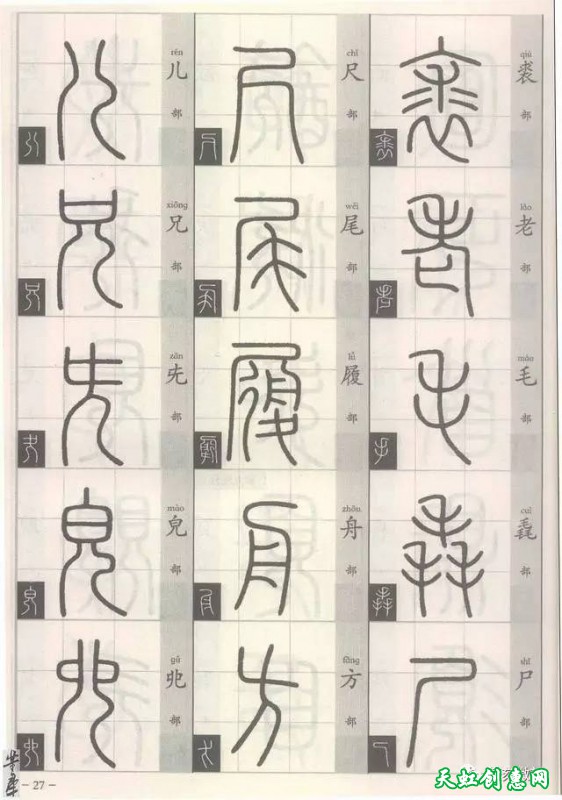 qiú
裘
部
lǎo
老
部
máo
毛
部
cuì
毳
部
shī
尸
部
chǐ
尺
部
wěi
尾
部
lǚ
履
部
zhōu
舟
部
fāng
方
部
rén
儿
部
xiōng
兄
部
zān
兂
部
mào
皃
部
gǔ
部
- 27 -
天虹创意网